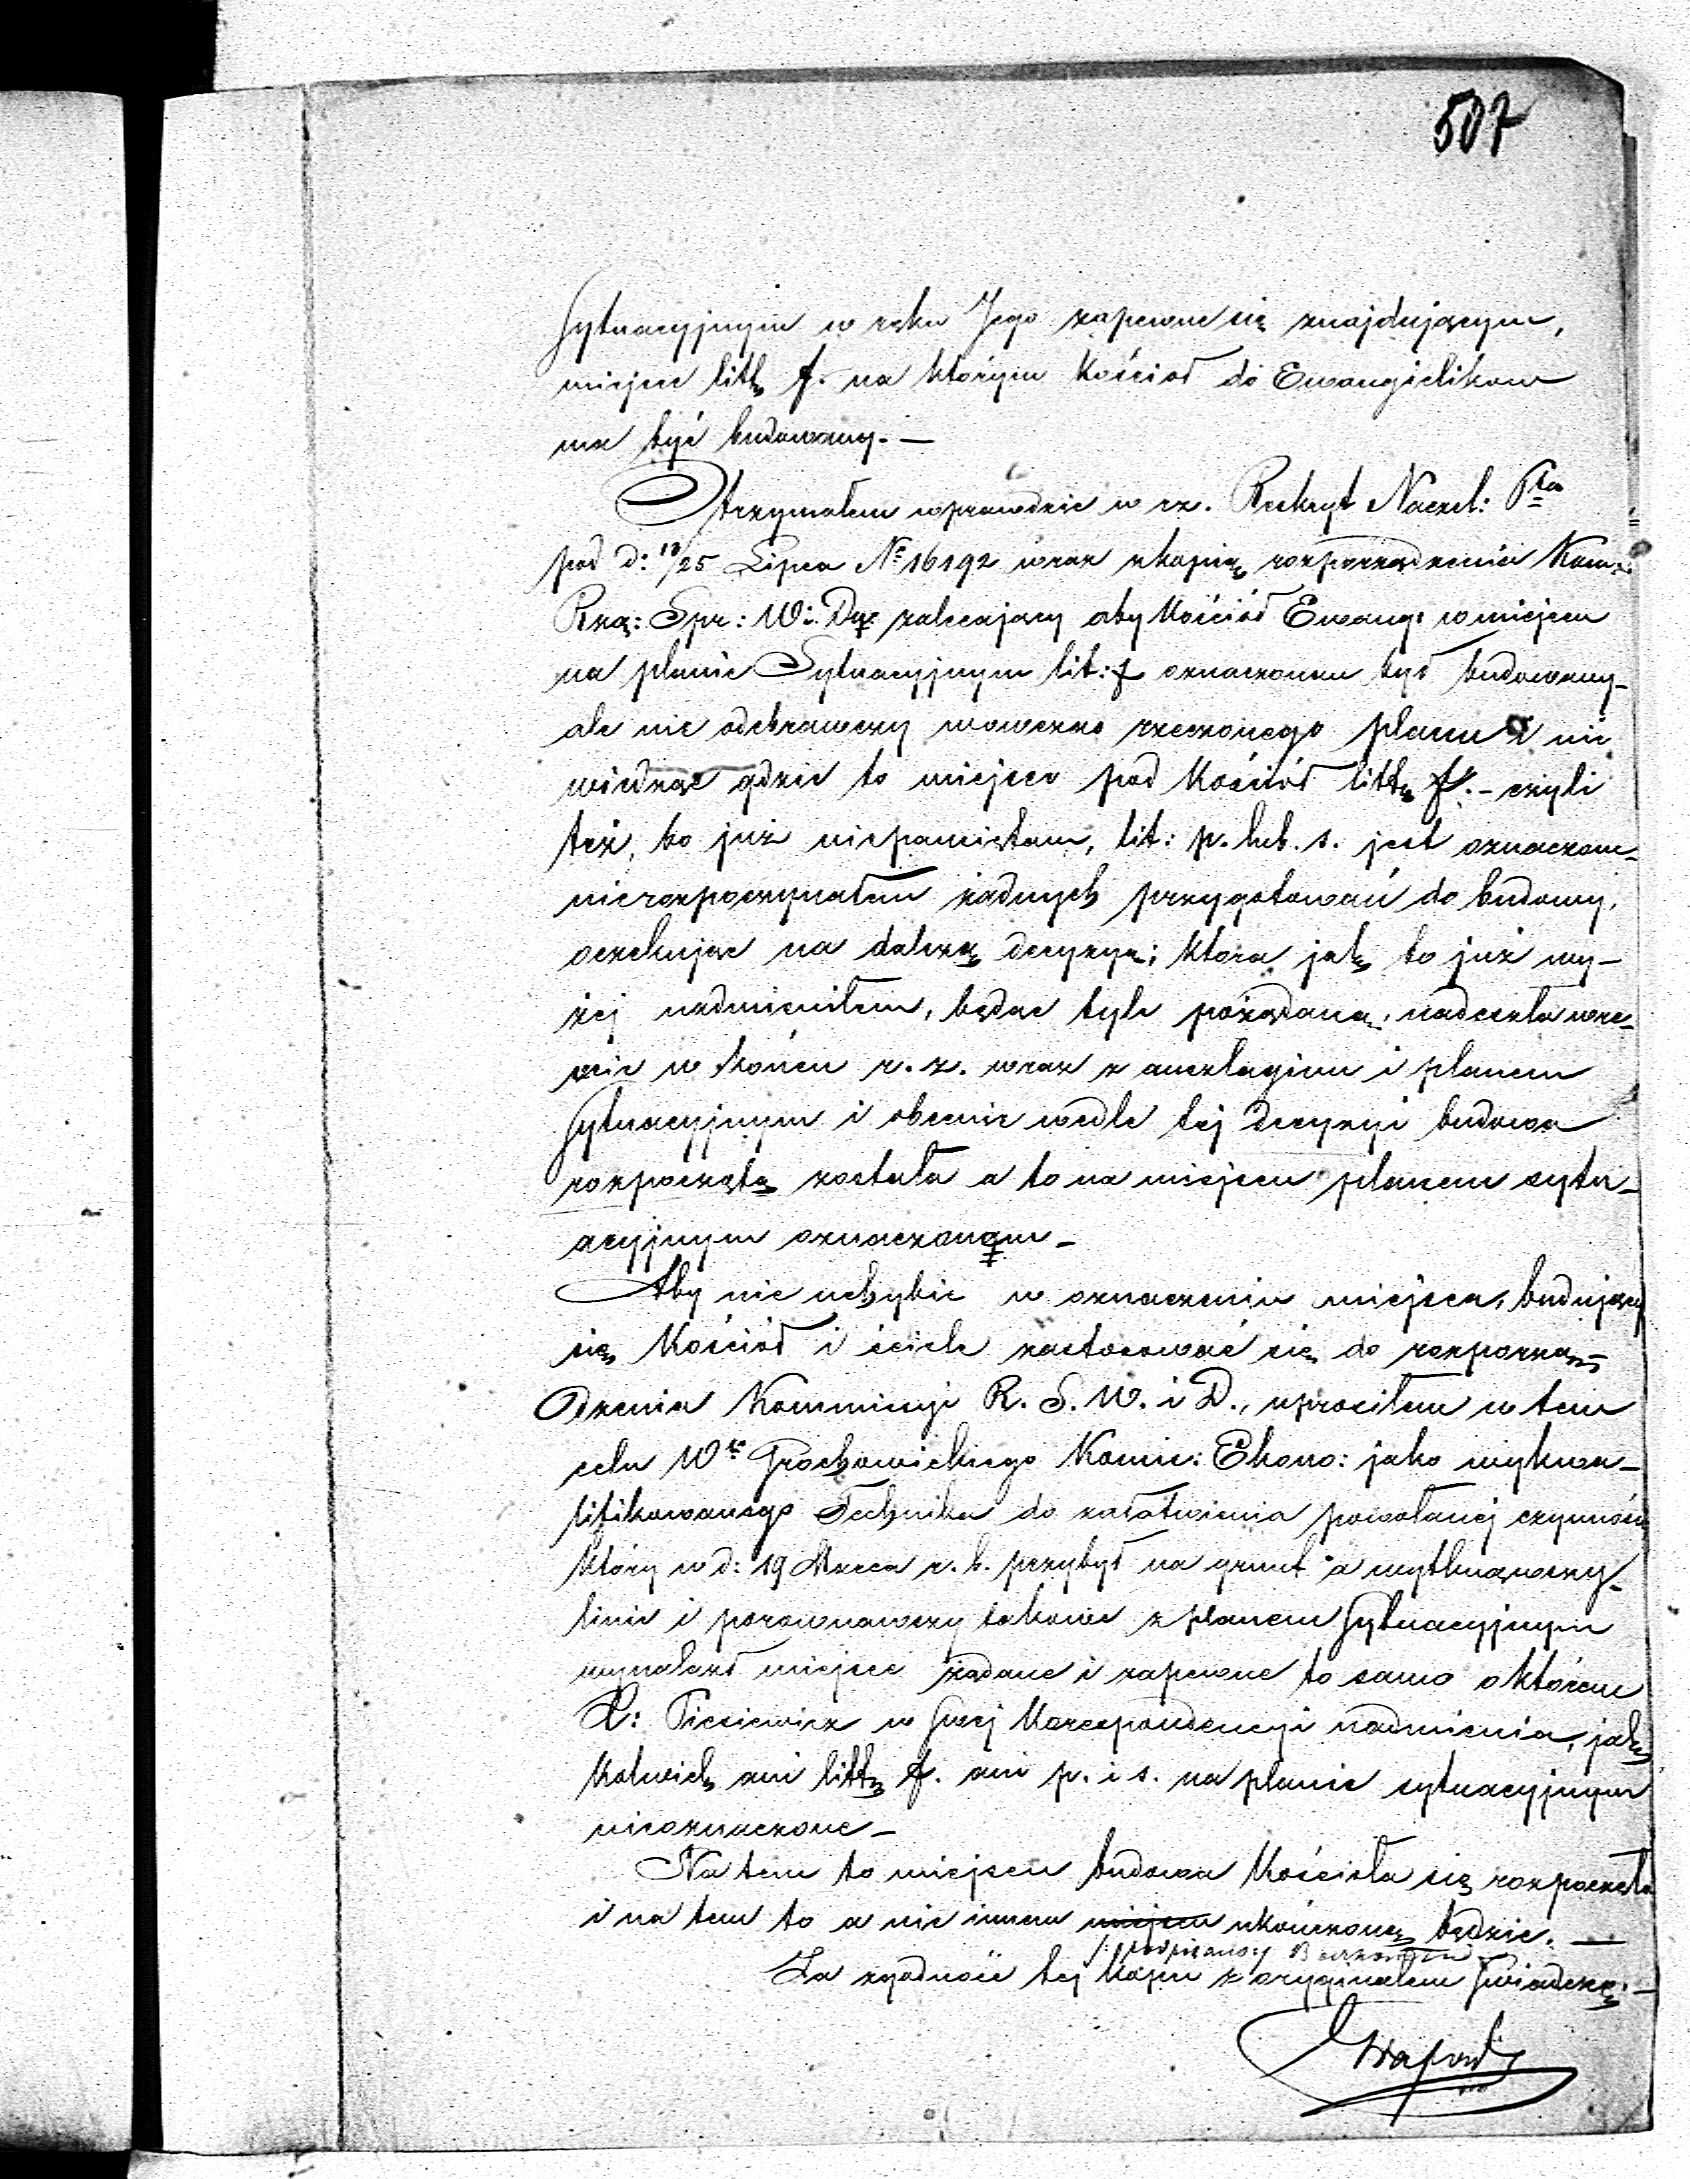 507
Sytuacyjnym w ręku Jego zapewne się znajdującym,
miejsce litt. f. na którym Kościoł do Ewangielikow
ma być budowany. —
Otrzymałem wprawdzie w r.z. Reskryt Naczel: Ptu
pod d: 13/25 Lipca No 16192 wraz z kopią rozporządzenia Kom:
Rzą: Spr: W: i D: zalecający aby Kościół Ewang: w miejscu
na planie Sytuacyjnym lit: f oznaczonem był budowany –
ale nie odebrawszy wowczas rzeczonego planu i nie
wiedząc gdzie to miejsce pod Kościół litt. f. – czyli
też, bo już niepamiętam, lit: p. lub. s. jest oznaczone –
nierozpoczynałem żadnych przygotowań do budowy,
oczekując na dalszą decyzyą; ktora jak to już wy–
żej nadmieniłem, będąc tyle pożądaną, nadeszła wre–
scie w końcu r. z. wraz z anszlagiem i planem
Sytuacyjnym i obecnie wedle tej decyzyi budowa
rozpoczętą została a to na miejscu planem sytu–
acyjnym oznaczonem –
Aby nie uchybić w oznaczeniu miejsca, budujący
się Kościół i ściśle zastosować się do rozporzą–
dzenia Kommissyi R. S. W. i D., uprosiłem w tem
celu Wo Grochowickiego Komis: Ekono: jako wykwa–
lifikowanego Technika do załatwienia powołanej czynności
który w d: 19 Marca r. b. przybył na grunt a wytknąwszy –
linie i porownawszy takowe z planem Sytuacyjnym
wynalazł miejsce żądane i zapewne to samo o którem
P: Piesiewicz w Swej Korespondencyi nadmienia, jak
kolwiek ani litt. f. ani p. i s. na planie sytuacyjnym
nieoznaczone –
Na tem to miejscu budowa Kościoła się rozpoczęła
i na tem to a nie innem miejscu ukończoną będzie. —
/: podpisano:/
Za zgodność tej kopii z oryginałem Świadczę. –